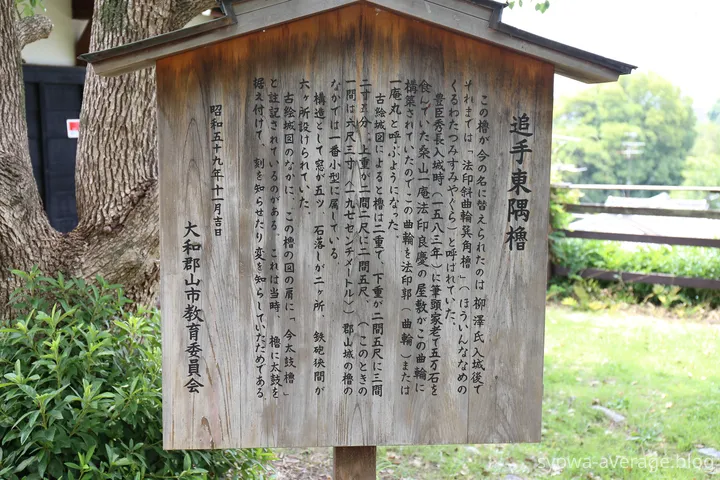 追手東隅櫓
この櫓が今の名に替えられたのは 柳澤氏入城後で
それまでは「法印斜曲輪巽角櫓」（ほういんななめの
くるわたつみすみやぐら）と呼ばれていた。
豊臣秀長入城時、（一五八三年）に筆頭家老で五万石を
食んでいた桑山一庵法印良慶の屋敷がこの曲輪に
構築されていたのでこの曲輪を法印郭（曲輪）または
一庵丸と呼ぶようになった。
古絵城図によると櫓は二重で、下重が二間五尺に三間
二寸五分、上重が二間二尺に二間五尺、（このときの
一間は六尺三寸（一九七センチメートル）郡山城の櫓の
なかでは一番小型に属している。
構造として窓が五ツ 石落しが二ヶ所、鉄砲狭間が
六ヶ所設けられていた。
古絵城図のなかに、この櫓の図の肩に「今太鼓櫓」
と註記されているのがある。これは当時、櫓に太鼓を
据え付けて、刻を知らせたり変を知らしていたためである。
昭和五十九年十一月吉日
大和郡山市教育委員会
syowa-average.blog